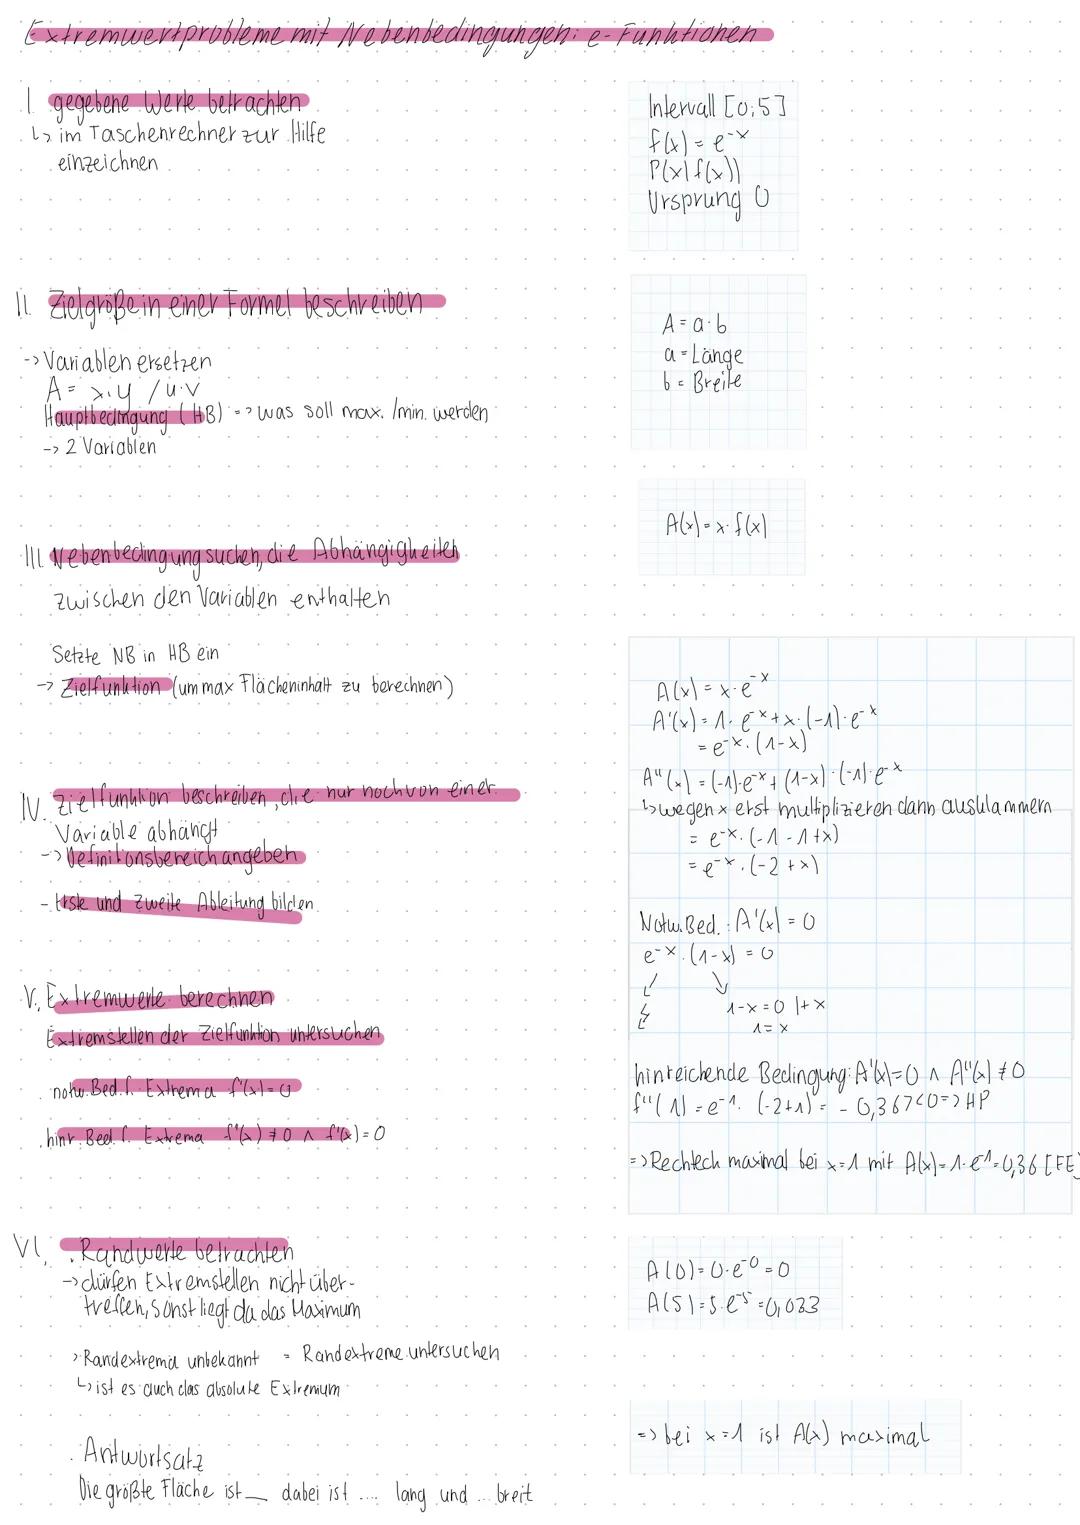 Extremwertprobleme mit Nebenbedingungen: e-Funktionen
I. gegebene Werte betrachten
↳ im Taschenrechner zur Hilfe
einzeichnen
Intervall [0;5]
f(x) = e^-x
P(x|f(x))
Ursprung 0
II. Zielgröße in einer Formel beschreiben
-> Variablen ersetzen
A = x·y / u·v
Hauptbedingung (HB) => was soll max. /min. werden
-> 2 Variablen
A = a·b
a = Länge
b = Breite
III. Nebenbedingung suchen, die Abhängigkeiten
zwischen den Variablen enthalten
Setzte NB in HB ein
-> Zielfunktion (um max Flächeninhalt zu berechnen)
A(x) = x·f(x)
IV. Zielfunktion beschreiben, die nur noch von einer
Variable abhängt
-> Definitonsbereich angeben
- Erste und zweite Ableitung bilden
A(x) = x·e^-x
A'(x) = 1·e^-x + x·(-1)·e^-x
= e^-x·(1-x)
A''(x) = (-1)·e^-x + (1-x)·(-1)·e^-x
↳ wegen x erst multiplizieren dann ausklammern
= e^-x·(-1-1+x)
= e^-x·(-2+x)
V. Extremwerte berechnen
Extremstellen der Zielfunktion untersuchen
. notw. Bed. f. Extrema f'(x)=0
. hinr. Bed. f. Extrema f''(x)≠0 ∧ f'(x)=0
Notw. Bed.: A'(x) = 0
e^-x·(1-x) = 0
↙ ↘
↯ 1-x=0 |+x
1=x
hinreichende Bedingung: A'(x)=0 ∧ A''(x)≠0
f''(1) = e^-1·(-2+1) = -0,367<0 => HP
=> Rechteck maximal bei x=1 mit A(x)=1·e^-1=0,36 [FE]
VI. . Randwerte betrachten
-> dürfen Extremstellen nicht über-
treffen, sonst liegt da das Maximum
> Randextrema unbekannt = Randextreme untersuchen
↳ ist es auch das absolute Extremium
A(0)=0·e^-0=0
A(5)=5·e^-5=0,033
=> bei x=1 ist A(x) maximal
. Antwortsatz
Die größte Fläche ist __ dabei ist .... lang und ... breit